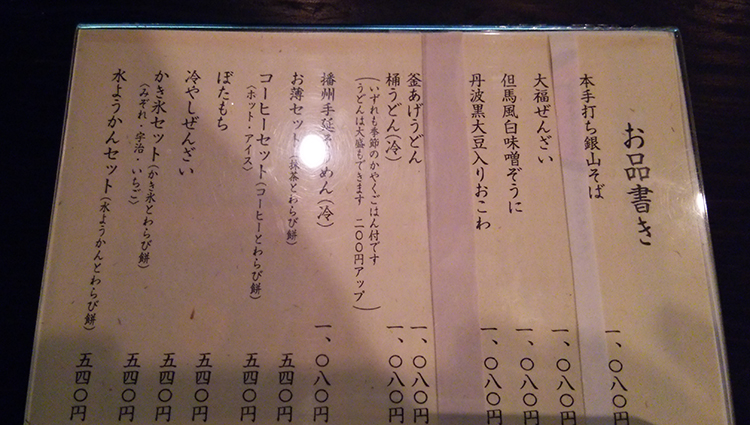 お品書き
本手打ち銀山そば 一、〇八〇円
大福ぜんざい 一、〇八〇円
但馬風白味噌ぞうに 一、〇八〇円
丹波黒大豆入りおこわ 一、〇八〇円
釜あげうどん 一、〇八〇円
桶うどん(冷) 一、〇八〇円
(いずれも季節のかやくごはん付です
うどんは大盛もできます 二〇〇円アップ)
播州手延そうめん(冷) 一、〇八〇円
お薄セット(抹茶とわらび餅) 五四〇円
コーヒーセット(コーヒーとわらび餅) 五四〇円
(ホット・アイス)
ぼたもち 五四〇円
冷やしぜんざい 五四〇円
かき氷セット(かき氷とわらび餅) 五四〇円
(みぞれ・宇治・いちご)
水ようかんセット(水ようかんとわらび餅) 五四〇円